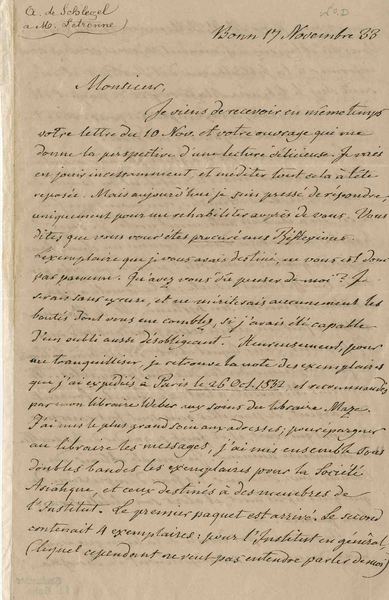 A. de Schlegel
a M. Letronne
Bonn 17 Novembre 33
Monsieur,
Je viens de recevoir en même temps
votre lettre du 10 Nov. et votre ouvrage qui me
donne la perspective d'une lecture délicieuse. Je vais
en jouir incessamment, et méditer tout cela à tête
reposée. Mais aujourd'hui je suis pressé de répondre,
uniquement pour me réhabiliter auprès de vous. Vous
dites que vous vous êtes procuré mes Réflexions.
L'exemplaire que je vous avais destiné, ne vous est donc
pas parvenu. Qu'avez vous dû penser de moi? Je
serais sans excuse, et ne mériterais aucunement les
bontés dont vous me comblez, si j'avais été capable
d'un oubli aussi désobligeant. Heureusement, pour
me tranquilliser, je retrouve la note des exemplaires
que j'ai expédiés à Paris le 26 Oct. 1832 et recommandés
par mon libraire Weber aux soins du libraire Maze.
J'ai mis le plus grand soin aux adresses; pour épargner
au libraire les messages, j'ai mis ensemble sous
doubles bandes les exemplaires pour la Société
Asiatique et ceux destinés à des membres de
l'Institut. Le premier paquet est arrivé. Le second
contenait 4 exemplaires: pour l'Institut en général
(lequel cependant ne veut pas entendre parler de moi)